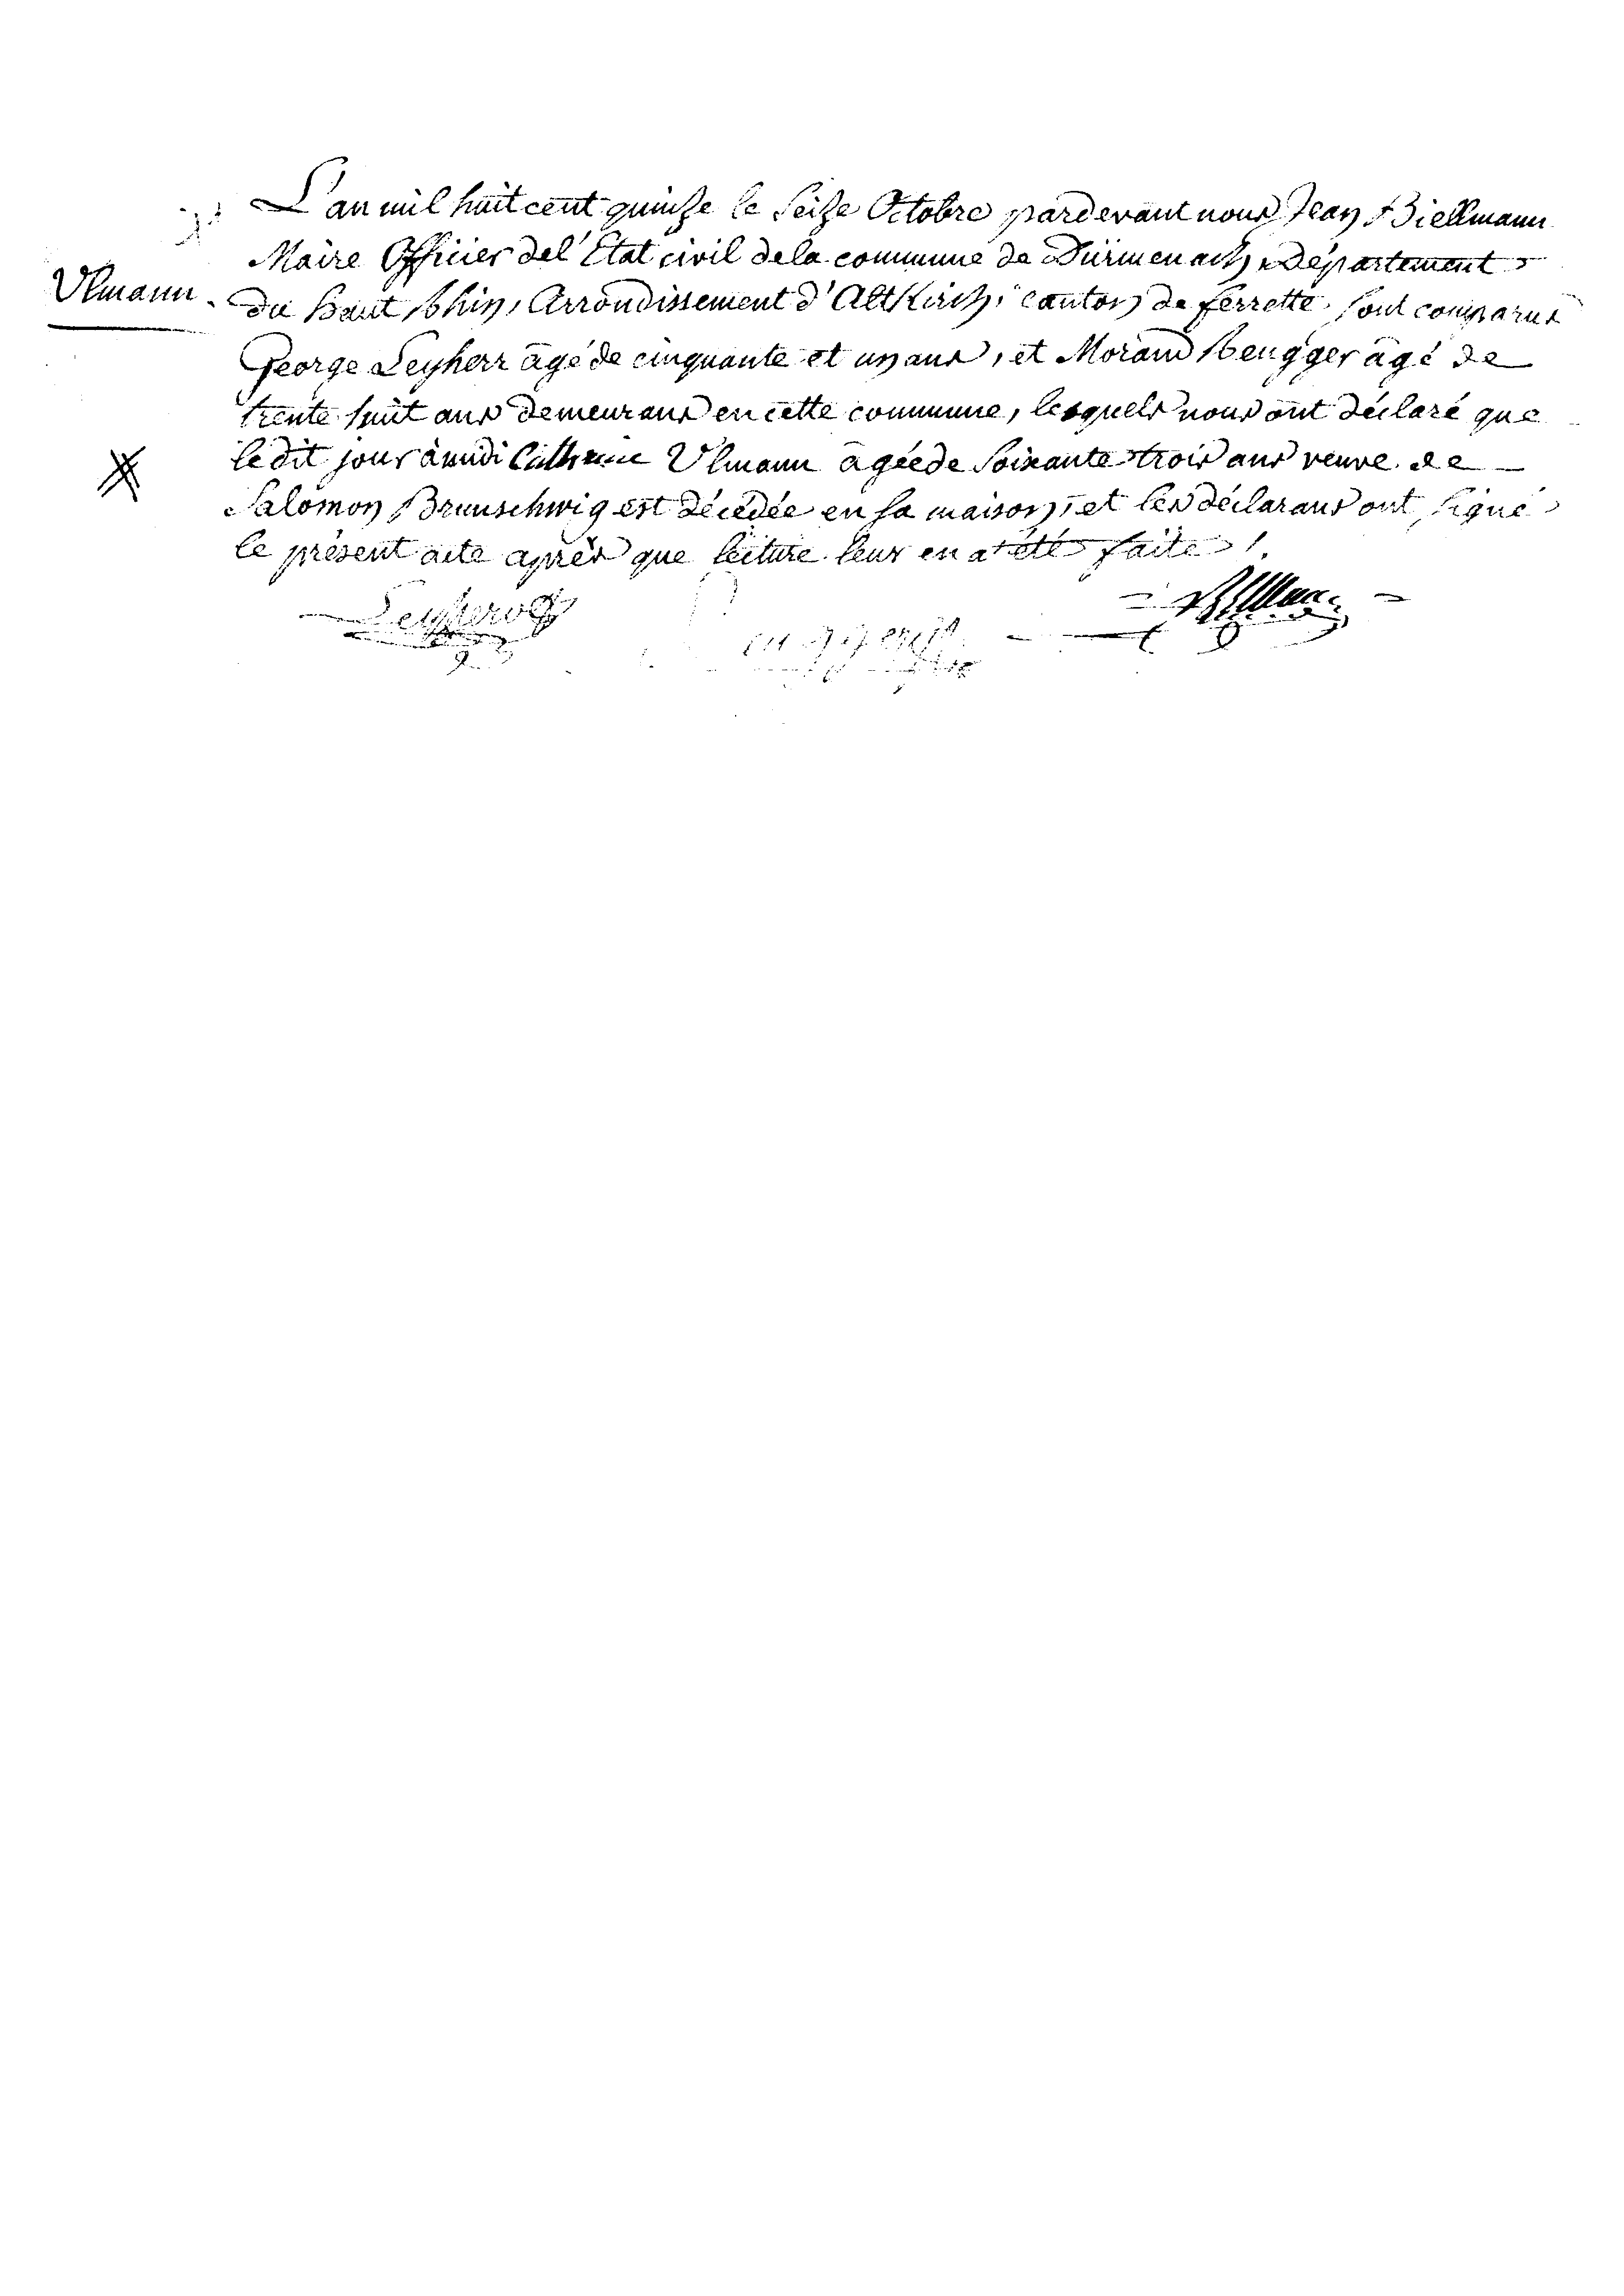 L'an mil huit cent quinze le Seize Octobre pardevant nous Jean Biellmann
Maire Officier del'Etat civil dela commune de Dürmenach, Département
Ulmann.
du haut Rhin, Arrondissement d'Altkirch, canton de ferrette sont comparus
George Leyherr âgé de cinquante et un ans, et Morand Rengger âgé de
trente huit ans demeurans en cette commune, lesquels nous ont déclaré que
ledit jour à midi Catherine Ulmann âgée de Soixante trois ans veuve de
Salomon Brunschwig est décédée en sa maison, et les déclarans ont signé
le présent acte après que lecture leur en a été faite.
Leyherr